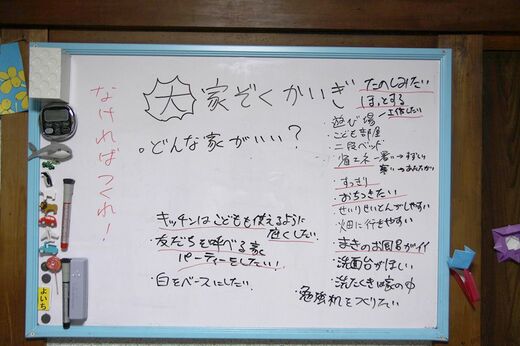 なければつくれ！
大家ぞくかいぎ
。どんな家がいい？
キッチンはこどもも使えるように
広くしたい
・友だちを呼べる家
パーティーをしたい！
・白をベースにしたい
たのしみたい
ほっとする
・遊び場ー工作したい
・こども部屋
・二段ベッド
・省エネー暑い→すずしい
寒い→あたたかい
・すっきり
・おちつきたい
・せいりせいとんがしやすい
・畑に行きやすい
・まきのお風呂がイイ
・洗面台がほしい
・洗たくきは家の中
・勉強机をつくりたい
よいち